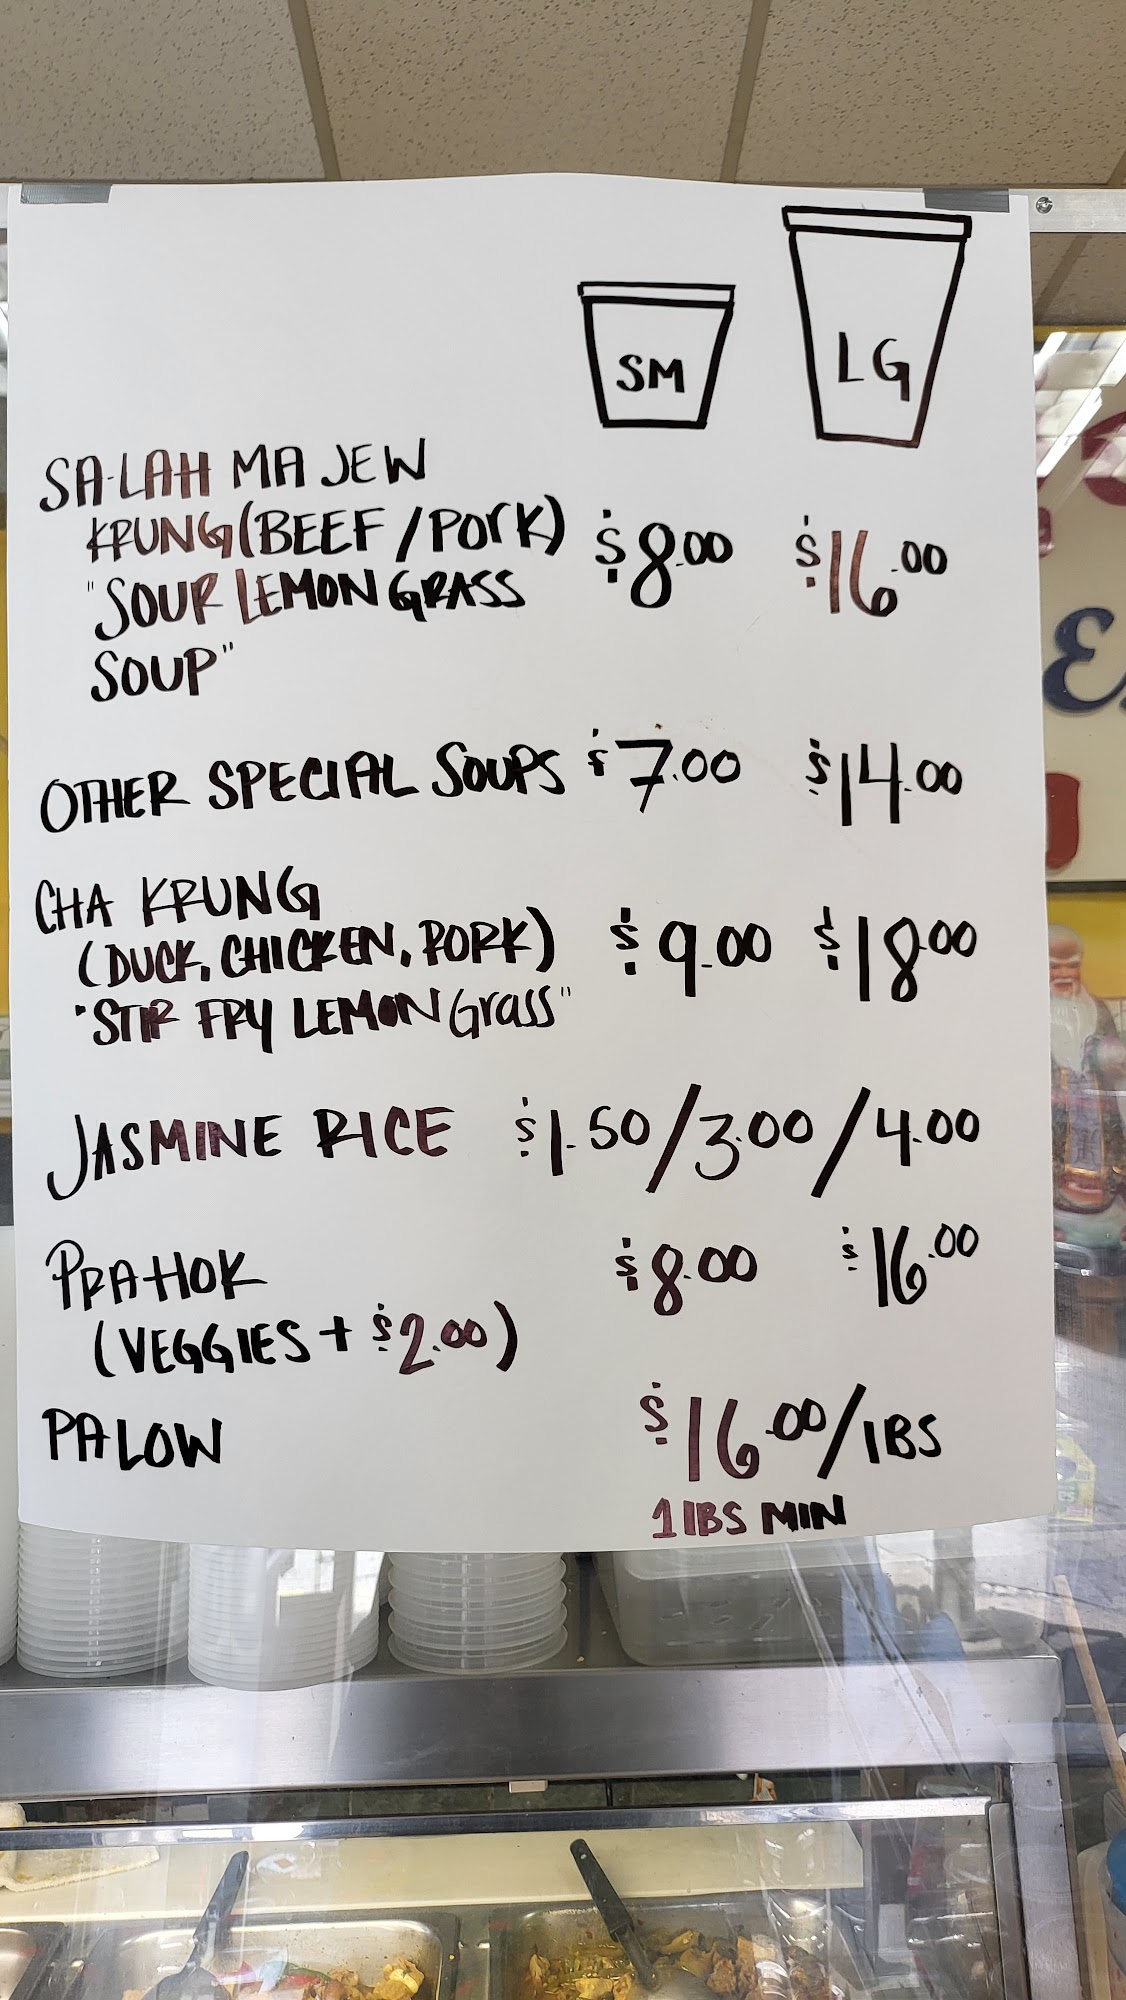 SM LG
SA-LAH MA JEW
KRUNG (BEEF/PORK) $8.00 $16.00
"SOUR LEMON GRASS
SOUP"
OTHER SPECIAL SOUPS $7.00 $14.00
CHA KRUNG
(DUCK, CHICKEN, PORK) $9.00 $18.00
"STIR FRY LEMON Grass"
JASMINE RICE $1.50/3.00/4.00
PRAHOK $8.00 $16.00
(VEGGIES + $2.00)
PALOW $16.00/lBS
1 lBS MIN